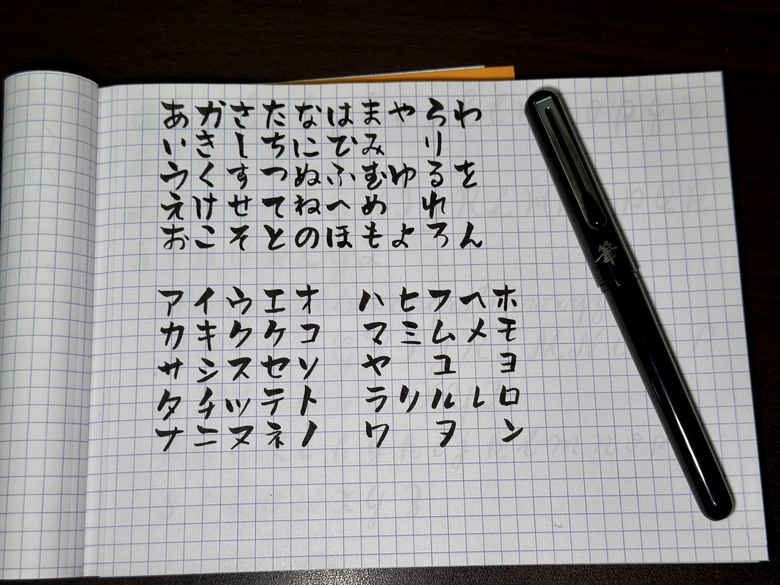 あかさたなはまやらわ
いきしちにひみ り
うくすつぬふむゆるを
えけせてねへめ れ
おこそとのほもよろん
アイウエオ ハヒフヘホ
カキクケコ マミムメモ
サシスセソ ヤ ユ ヨ
タチツテト ラリルレロ
ナニヌネノ ワ ヲ ン
筆